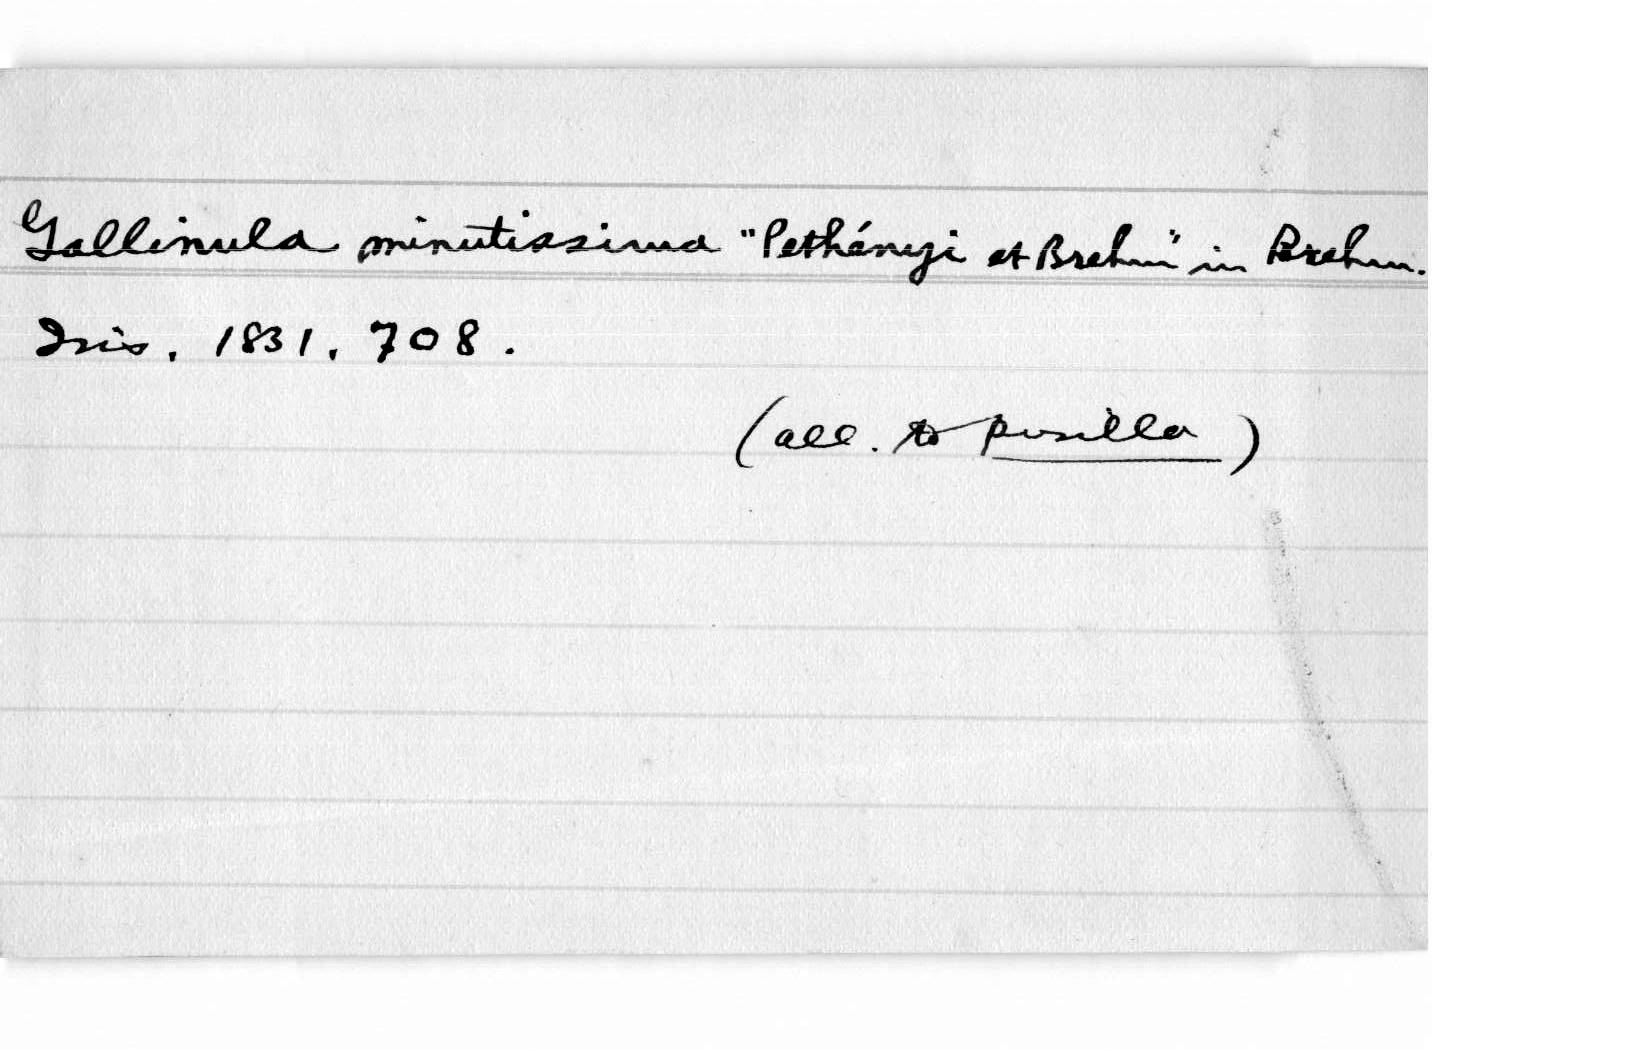 Gallinula minutissima "Pethényi et Brehm" in Brehm.
Isis, 1831, 708.
(all. to pusilla)